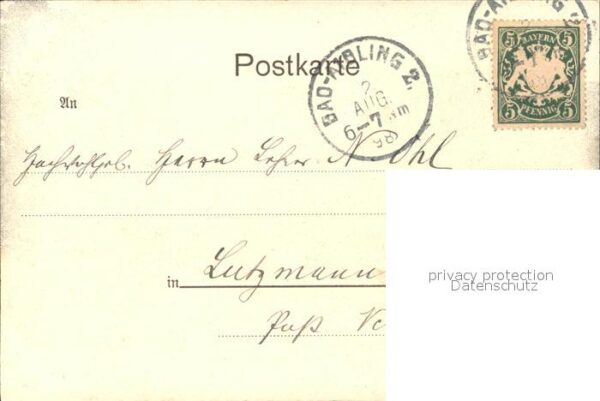 BAD-AIBLING 2.
BAYERN
5 5
5 PFENNIG 5
Postkarte
BAD-AIBLING 2.
2
AUG.
6-7 Nm
98
An
Hochwohlgeb. Herrn Lehrer N Ohl
privacy protection
Datenschutz
in Lutzmann
Paß